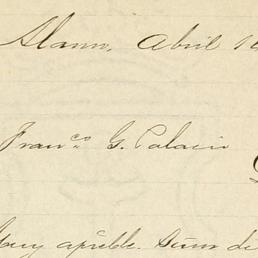 Alamo, Abril 16
Fran.co G. Palacio
Muy apreble. Señor de